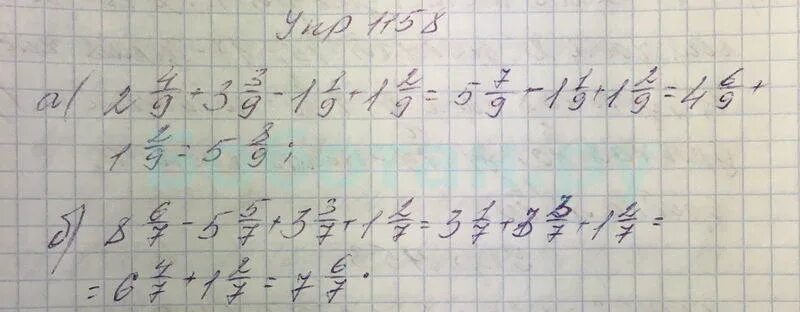 Упр 1158
а) 2 4/9 + 3 3/9 - 1 1/9 + 1 2/9 = 5 7/9 - 1 1/9 + 1 2/9 = 4 6/9 +
1 2/9 = 5 8/9 ;
б) 8 6/7 - 5 5/7 + 3 3/7 + 1 2/7 = 3 1/7 + 3 3/7 + 1 2/7 =
= 6 4/7 + 1 2/7 = 7 6/7 .